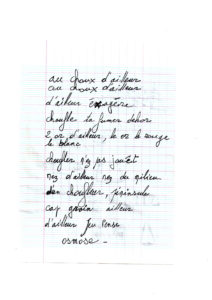 au choux d'ailleur
au choux d'ailleur
d'ailleur Exagère
chouffle la fumer dehor
2 or d'ailleur, le or le rouge
le blanc
choufler n'ez pas jautet
nez d'ailleur nez du milieu
d'un choufleur, péninsule
cap ailleur
d'ailleur Jeu Pense
osmose -